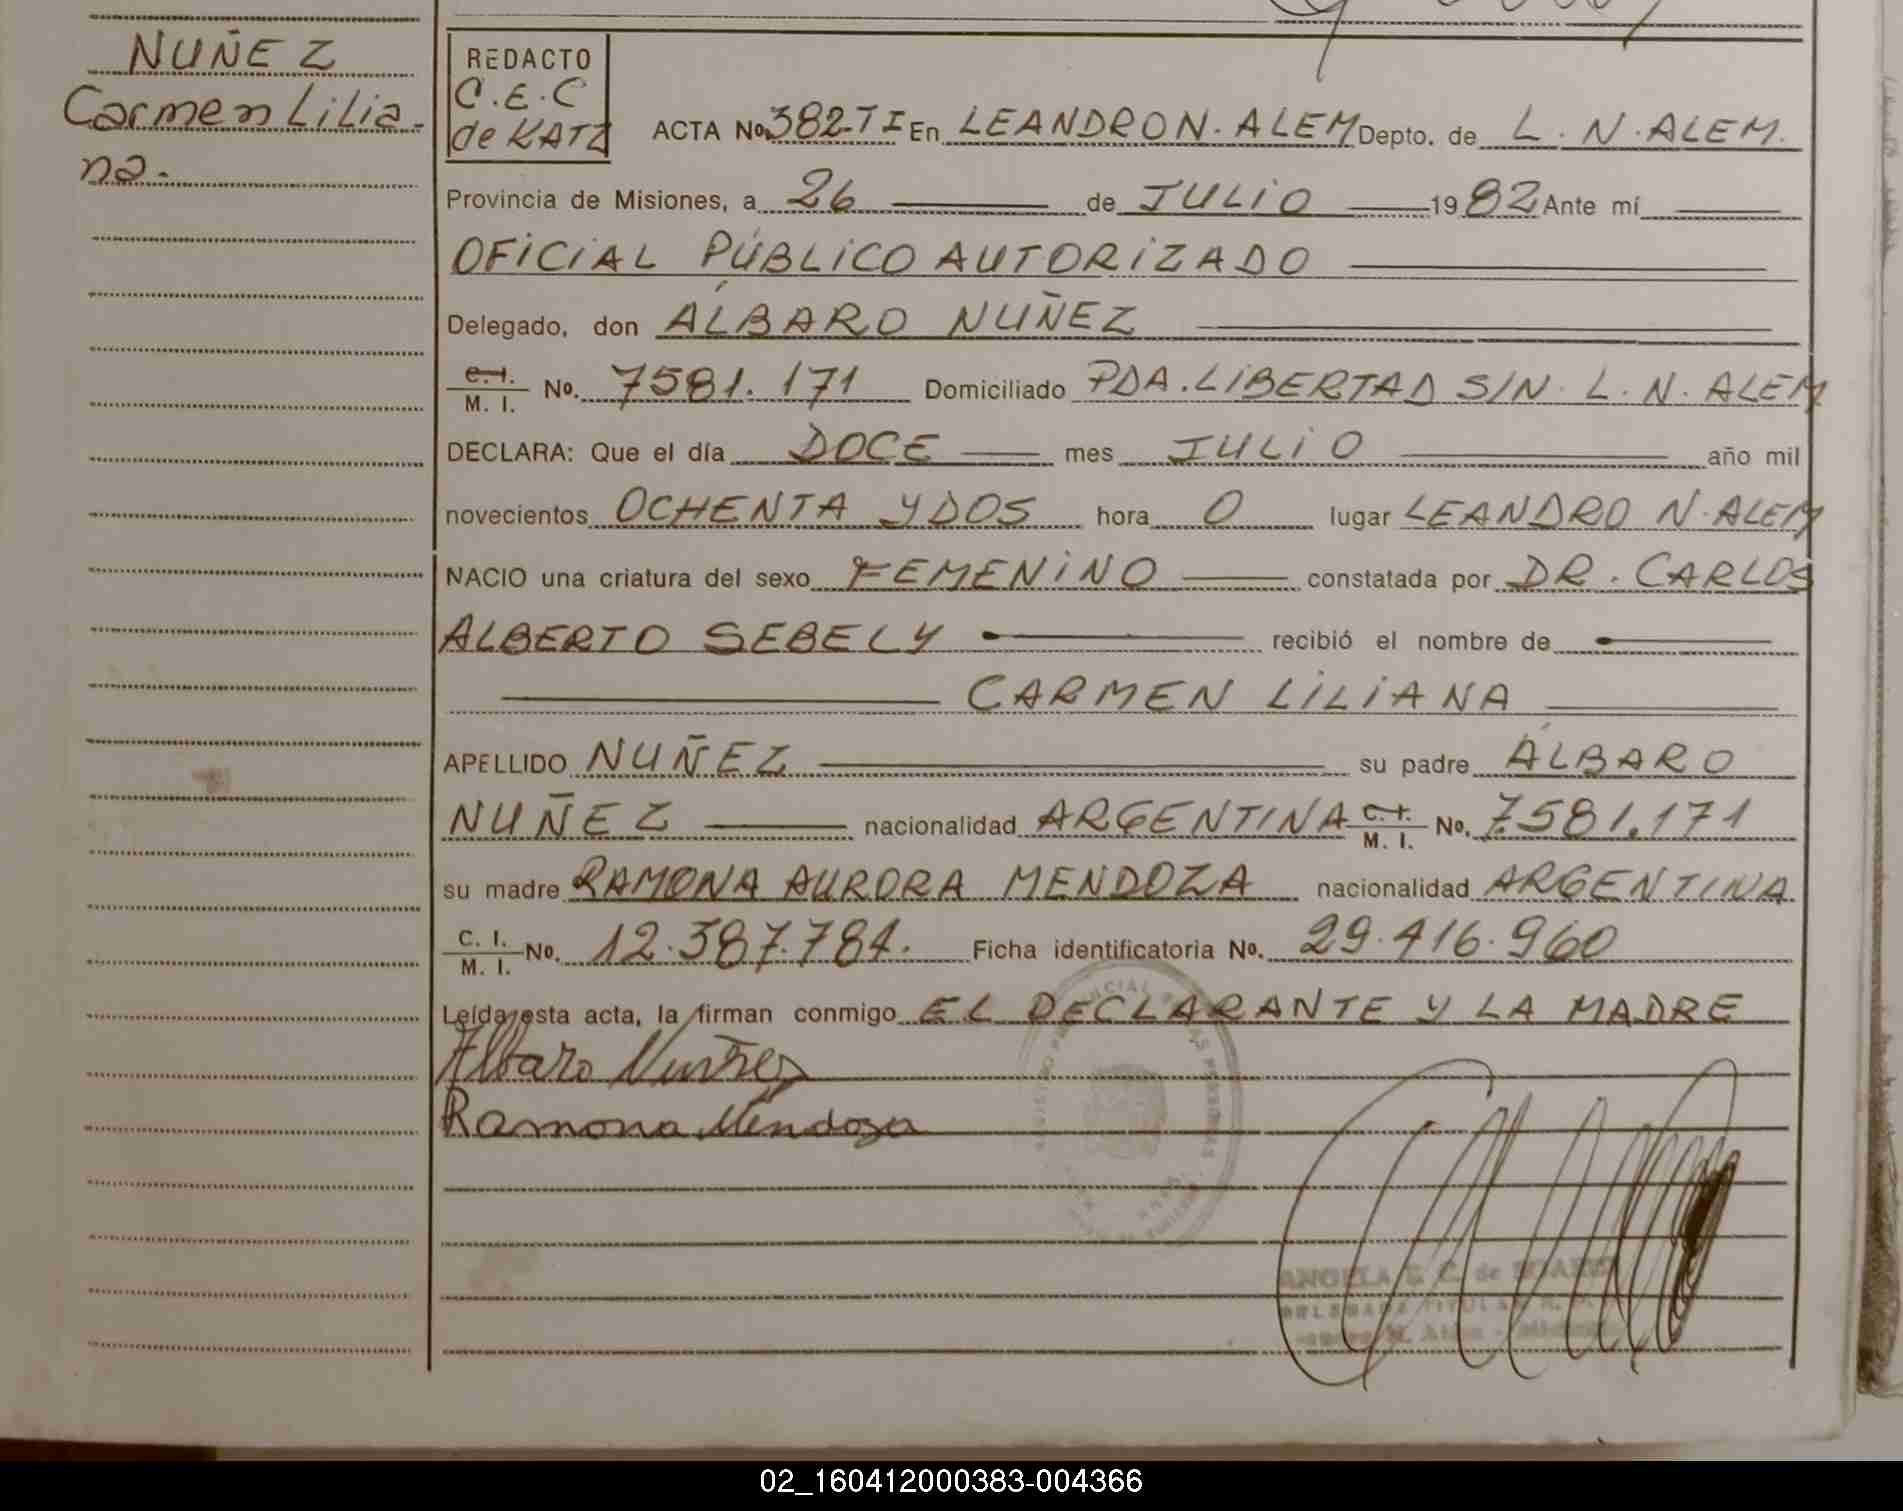 NUÑEZ
Carmen Lilia-
na.
REDACTO
C.E.C
de KATZ
ACTA No. 382-TI En LEANDRO N. ALEM Depto. de L. N. ALEM.
Provincia de Misiones, a 26 de JULIO 1982 Ante mí
OFICIAL PÚBLICO AUTORIZADO
Delegado, don ÁLBARO NUÑEZ
C. I. M. I. No. 7581.171 Domiciliado PDA. LIBERTAD S/N. L. N. ALEM
DECLARA: Que el día DOCE mes JULIO año mil
novecientos OCHENTA Y DOS hora 0 lugar LEANDRO N. ALEM
NACIO una criatura del sexo FEMENINO constatada por DR. CARLOS
ALBERTO SEBELY recibió el nombre de
CARMEN LILIANA
APELLIDO NUÑEZ su padre ÁLBARO
NUÑEZ nacionalidad ARGENTINA C. I. M. I. No. 7.581.171
su madre RAMONA AURORA MENDOZA nacionalidad ARGENTINA
C. I. M. I. No. 12.387.784. Ficha identificatoria No. 29.416.960
Leída esta acta, la firman conmigo EL DECLARANTE Y LA MADRE
Albaro Nuñez
Ramona Mendoza
ANGELA E. C. de
DELEGADA TITULAR
02_160412000383-004366